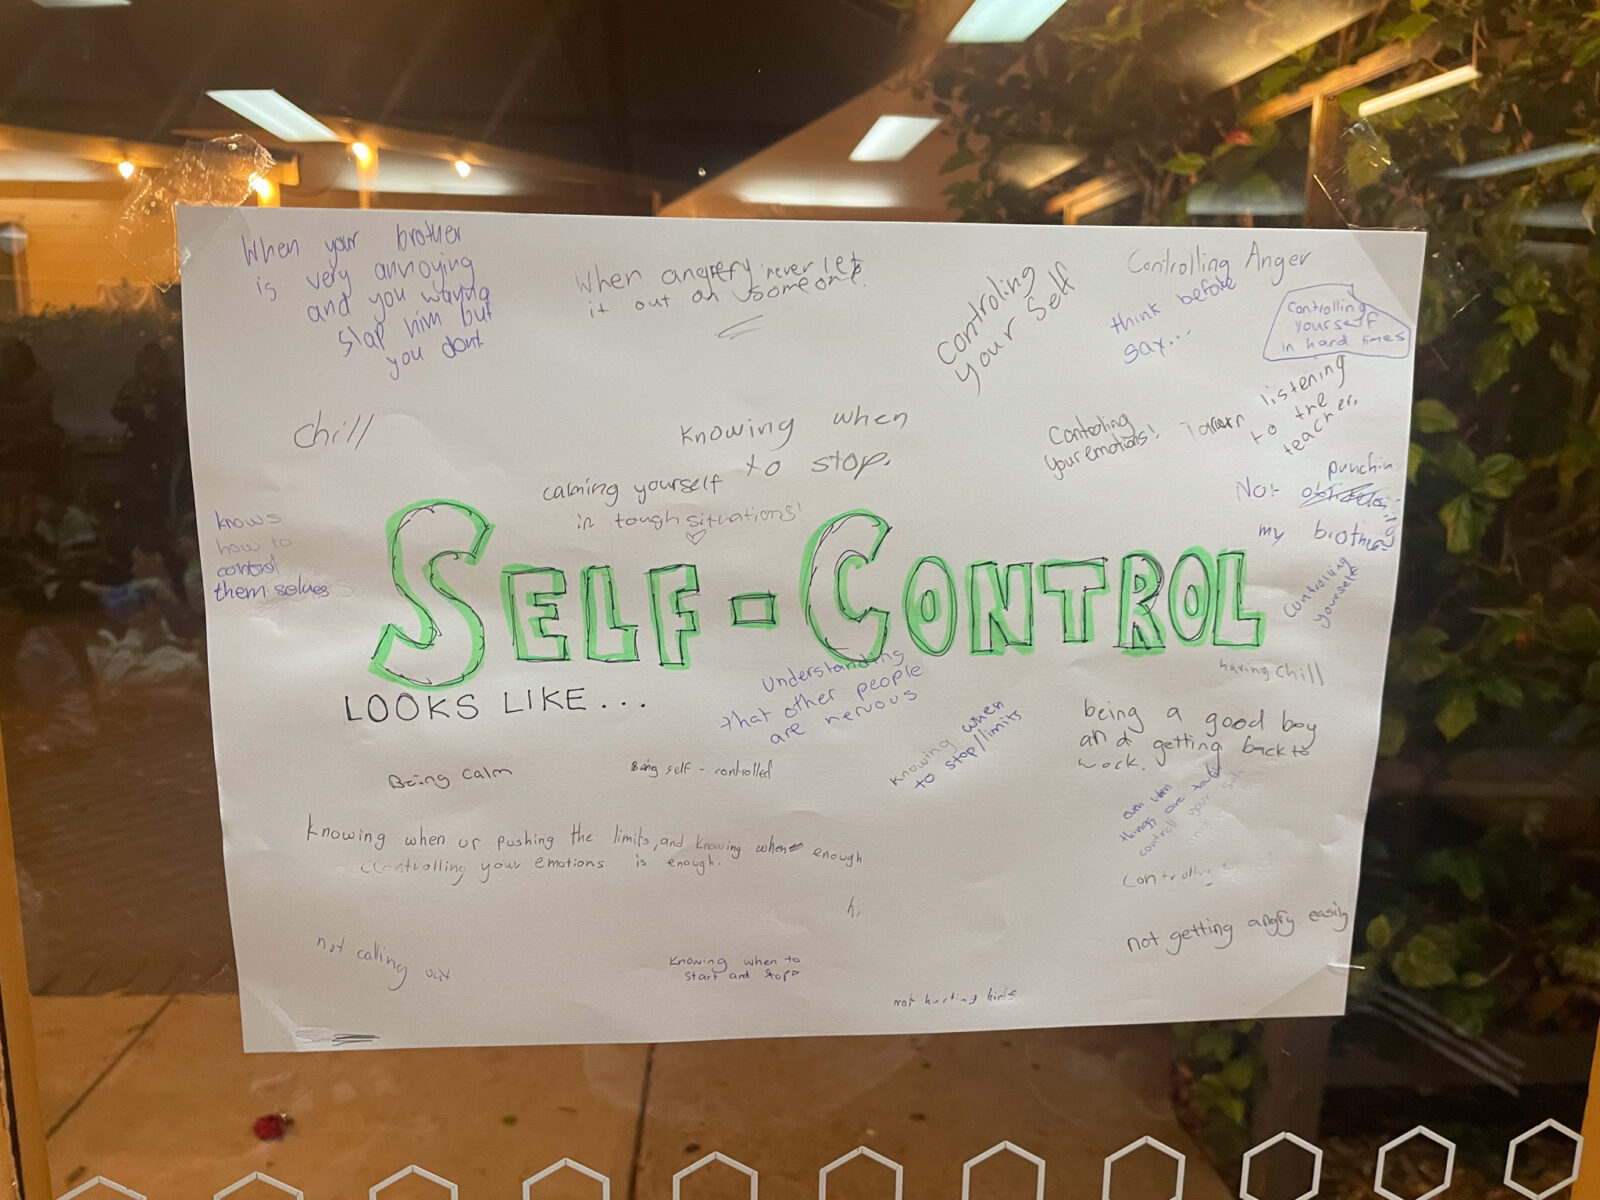 When your brother
is very annoying
and you wanna
slap him but
you dont
When angery never let
it out on someone.
Controling
your Self
Controlling Anger
think before
say...
Controlling
yourself
in hard times
chill
Knowing when
to stop.
Contoling
your emotions!
listening
to the
teacher.
calming yourself
in tough situations!
Not punching
my brother
knows
how to
control
them selves
SELF-CONTROL
LOOKS LIKE...
Controlling
yourself
having chill
Understanding
that other people
are nervous
Knowing when
to stop/limits
being a good boy
and getting back to
work.
Being calm
Being self-controlled
even when
things are
control your
Knowing when ur pushing the limits, and knowing when enough
Controlling your emotions is enough.
Controlling
hi
not getting angry easily
not calling
Knowing when to
start and stop
not hurting kids